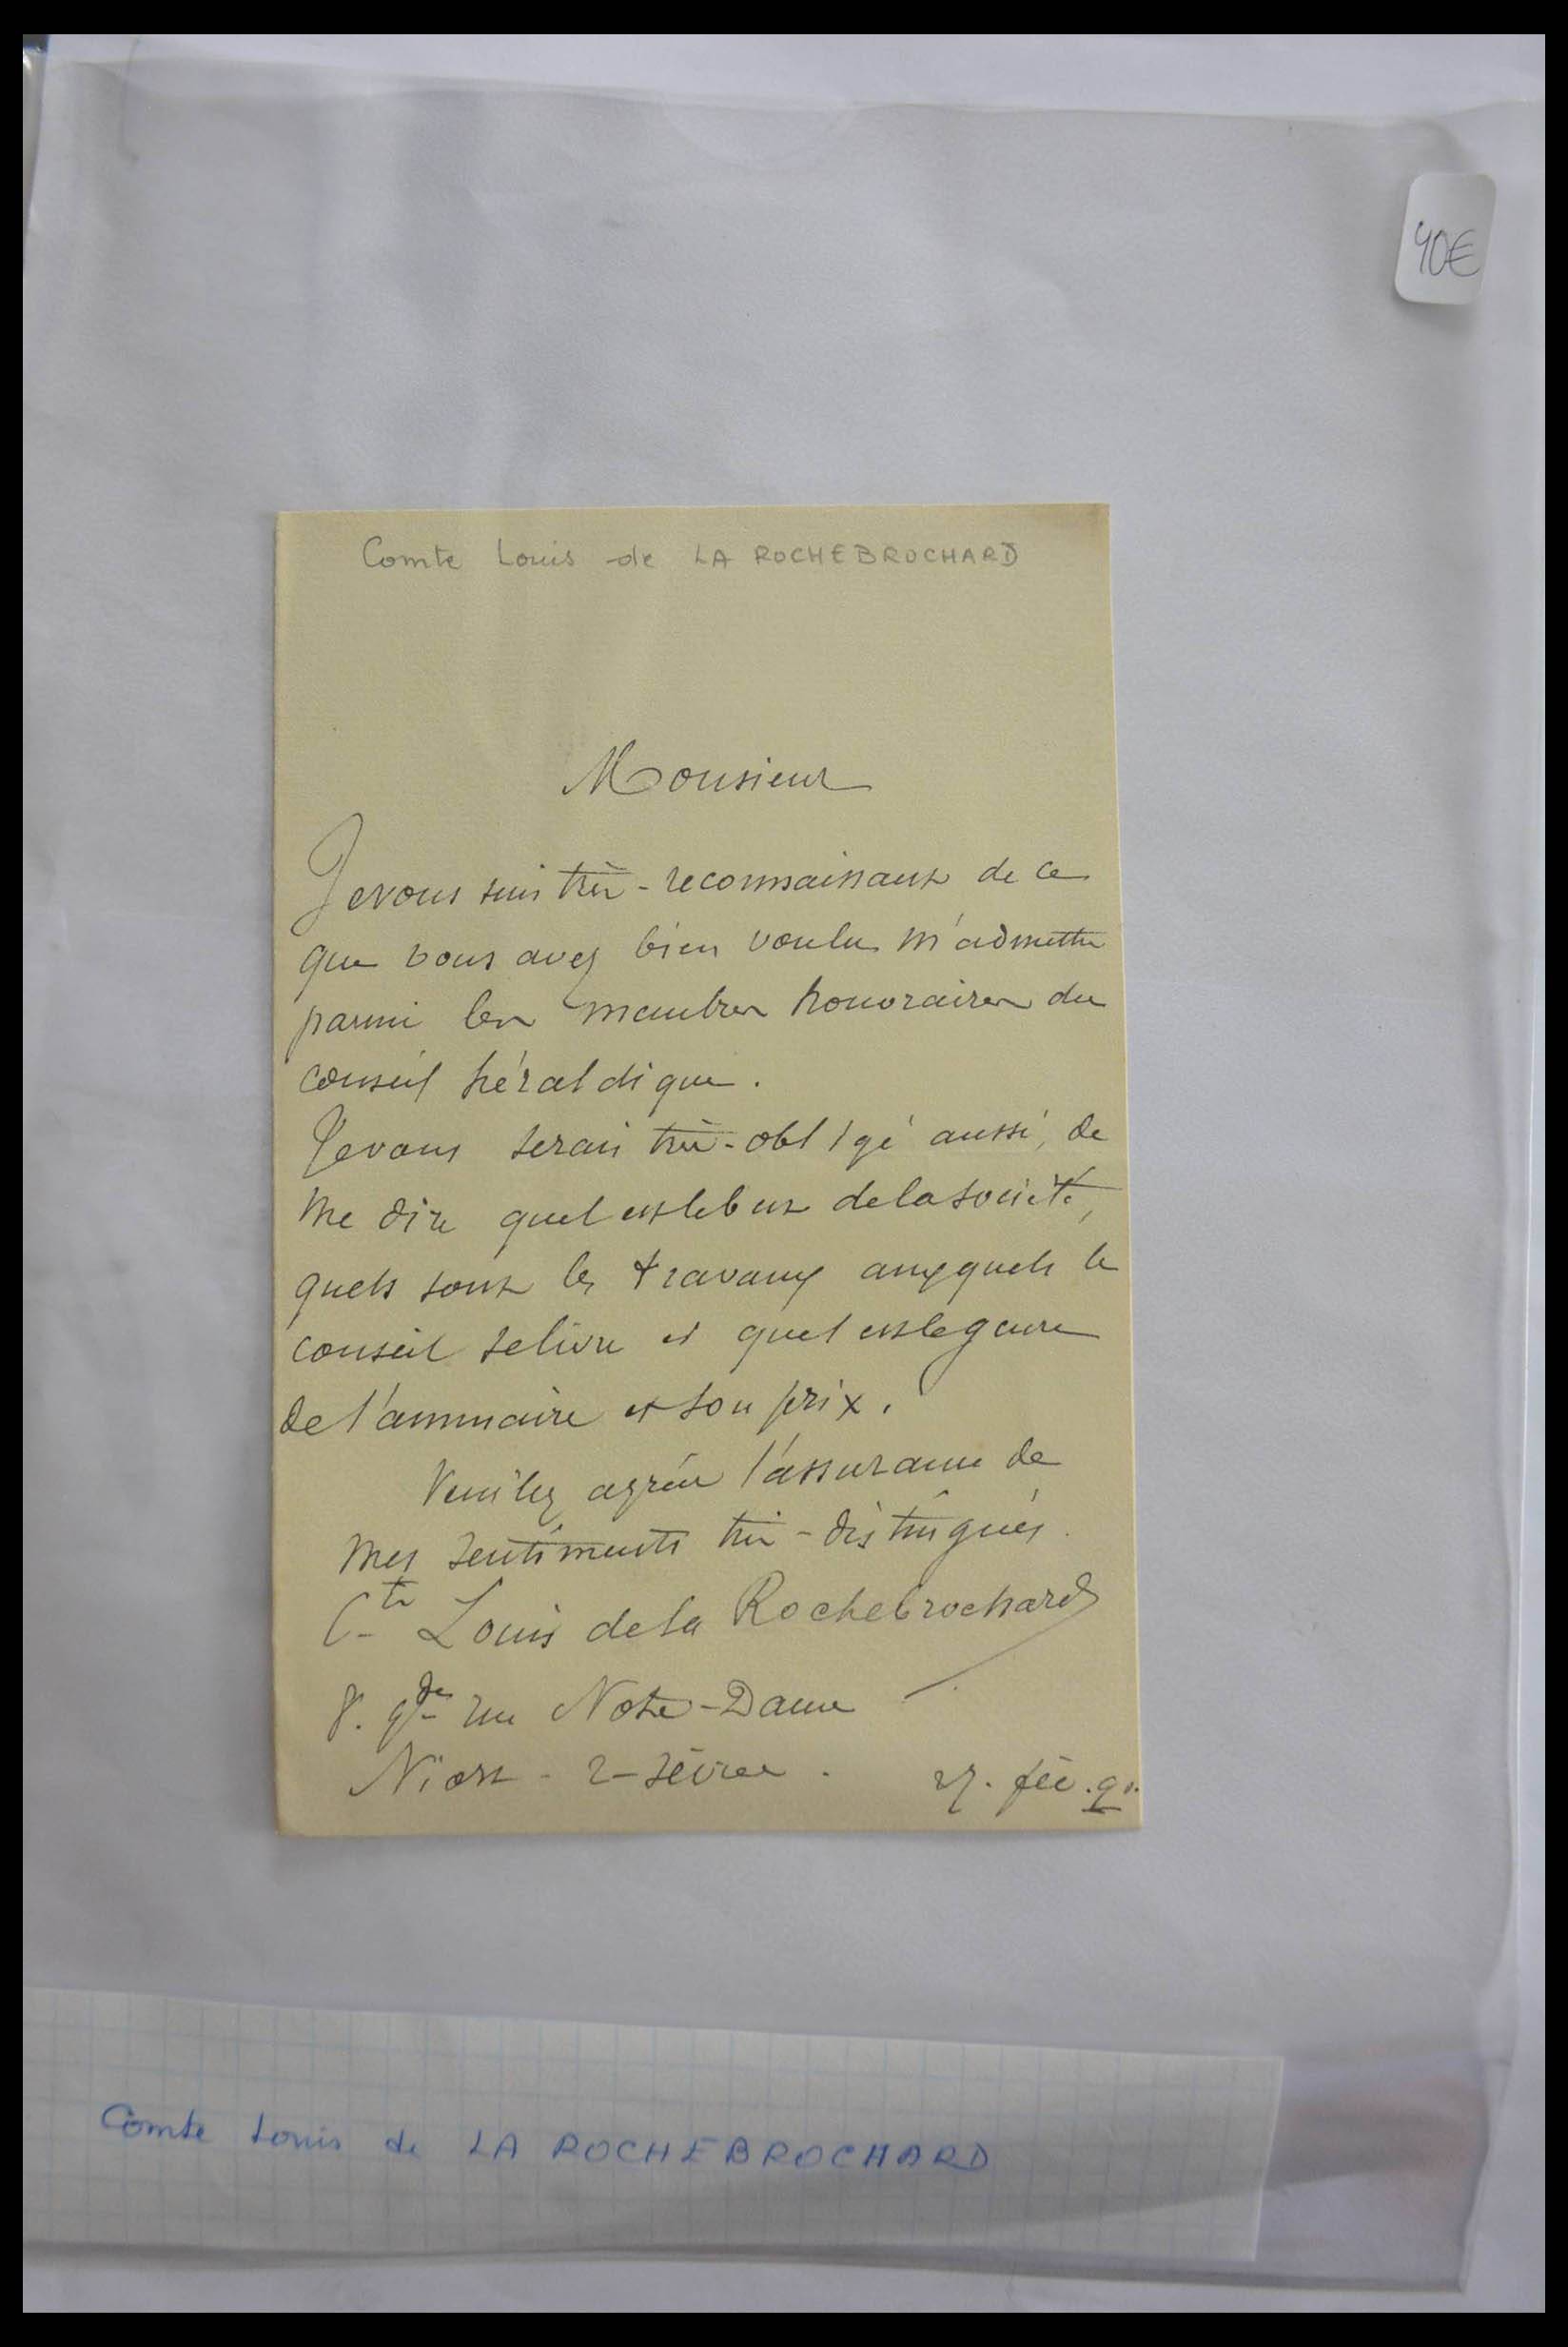 40€
Comte Louis de LA ROCHEBROCHARD
Monsieur
Je vous suis très-reconnaissant de ce
que vous avez bien voulu m'admettre
parmi les membres honoraires du
conseil héraldique.
Je vous serais très-obligé aussi, de
me dire quel est le but de la société,
quels sont les travaux auxquels le
conseil se livre et quel est le genre
de l'annuaire et son prix.
Veuillez agréer l'assurance de
mes sentiments très-distingués.
Cte Louis de la Rochebrochard
8. gde rue Notre-Dame
Niort - 2-Sèvres.
27. fév.
Comte Louis de LA ROCHEBROCHARD